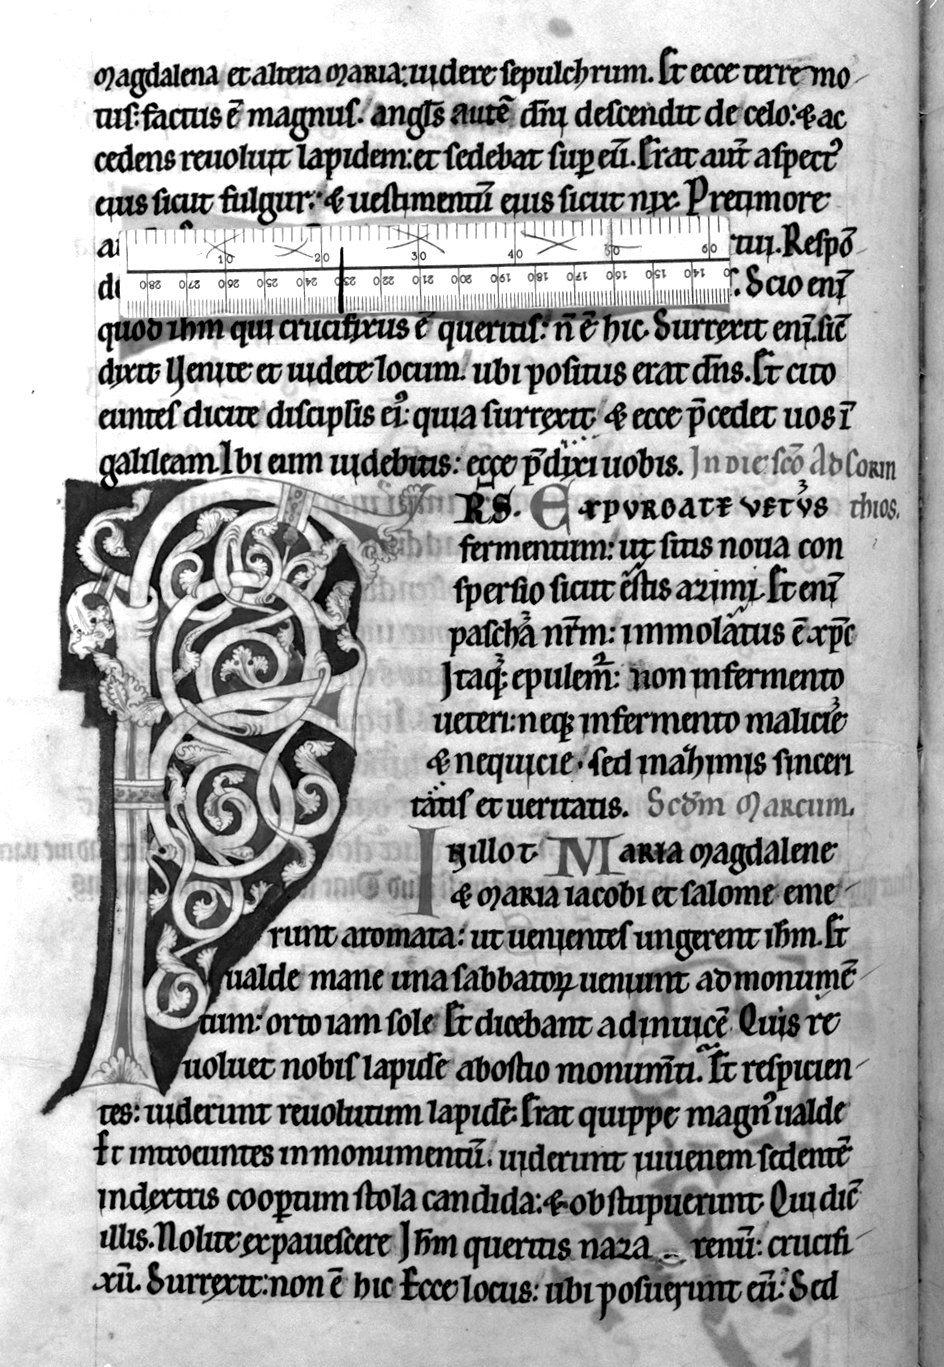 magdalena et altera maria: uidere sepulchrum. Et ecce terremo
tus: factus ē magnus. angl̄s autē dn̄i descendit de celo: & ac
cedens reuoluit lapidem: et sedebat sup eū. Erat aut̄ aspect᾽
eius sicut fulgur: & uestimentū eius sicut nix. Pre timore
tui. Respō
10 20 30 40 50 60
280 270 260 250 240 230 220 210 200 190 180 170 160 150 140
Scio eni̅
quod ihm qui crucifixus ē queritis: n̄ ē hic. Surrexit eni̅. sic̄
dixit Venite et uidete locum: ubi positus erat dn̄s. Et cito
euntes dicite discipl̄is ei᾽: quia surrexit & ecce p̄cedet uos ī
galileam. Ibi eum uidebitis: ecce p̄dixi uobis. In die sc̄o Ad Corin
thios.
RS. Expurgate uetus
fermentum: ut sitis noua con
spersio sicut estis azimi. Et eni̅
pascha nr̄m: immolatus ē xp̄c
Itaq; epulem̄: non in fermento
ueteri: neq; in fermento malicie
& nequicie. sed in azimis sinceri
tatis et ueritatis. Scdm Marcum.
In illo t̄ Maria magdalene
& maria iacobi et salome eme
runt aromata: ut uenientes ungerent ihm. Et
ualde mane una sabbatoꝝ ueniunt ad monumē
tum: orto iam sole Et dicebant ad inuicē Quis re
uoluet nobis lapidē ab ostio monum̄ti. Et respicien
tes: uiderunt reuolutum lapidē. Erat quippe magn᾽ ualde
Et introeuntes in monumentū. uiderunt iuuenem sedentē
in dextris coopertum stola candida: & obstupuerunt Qui dic̄
illis. Nolite expauescere Ihm queritis naza renū: crucifi
xū. Surrexit: non ē hic Ecce locus: ubi posuerunt eū. Sed